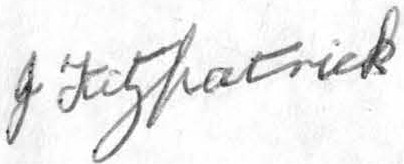 J Fitzpatrick